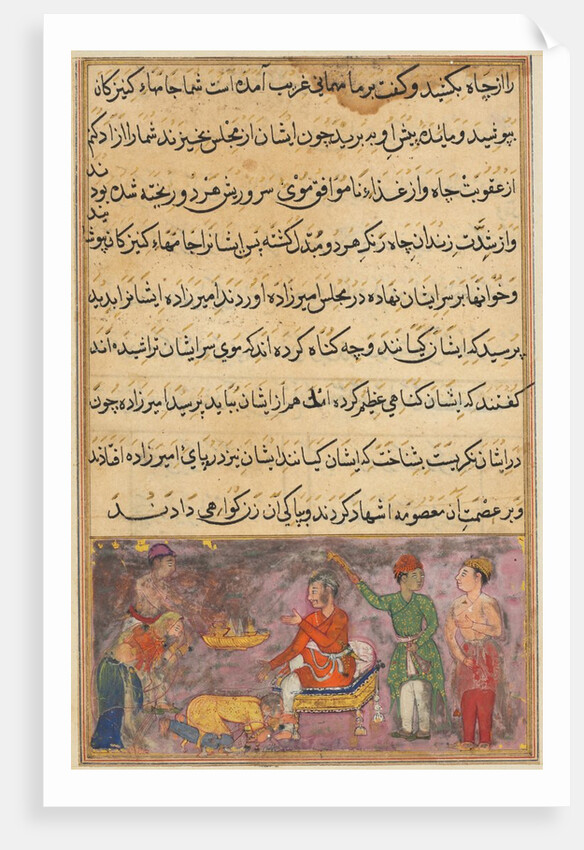 را از چاه بکشید و گفت بر ما مهمانی غریب آمده است شما جامهاء کنیزکان
بپوشید و مایده پیش او به برید چون ایشان از مجلس بخیزند شما را ازاد کنم
از عقوبت چاه و از غذاء ناموافق موی سر و ریش هر دو ریخته شده بود
و از شدت زندان چاه رنک هر دو مبدل کشته پس ایشانرا جامهاء کنیزکان پوشا
ندند
و خوانها بر سر ایشان نهاده در مجلس امیرزاده اوردند امیرزاده ایشانرا بدید
پرسید که ایشان کیانند و چه کناه کرده اند که موی سر ایشان تراشیده اند
کفتند که ایشان کناهی عظیم کرده اند هم از ایشان بباید پرسید امیرزاده چون
در ایشان نکریست بشناخت که ایشان کیانند ایشان نیز در پای امیرزاده افتادند
و بر عصمت آن معصومه اشهاد کردند و بپاکی آن زن کواهی دادند